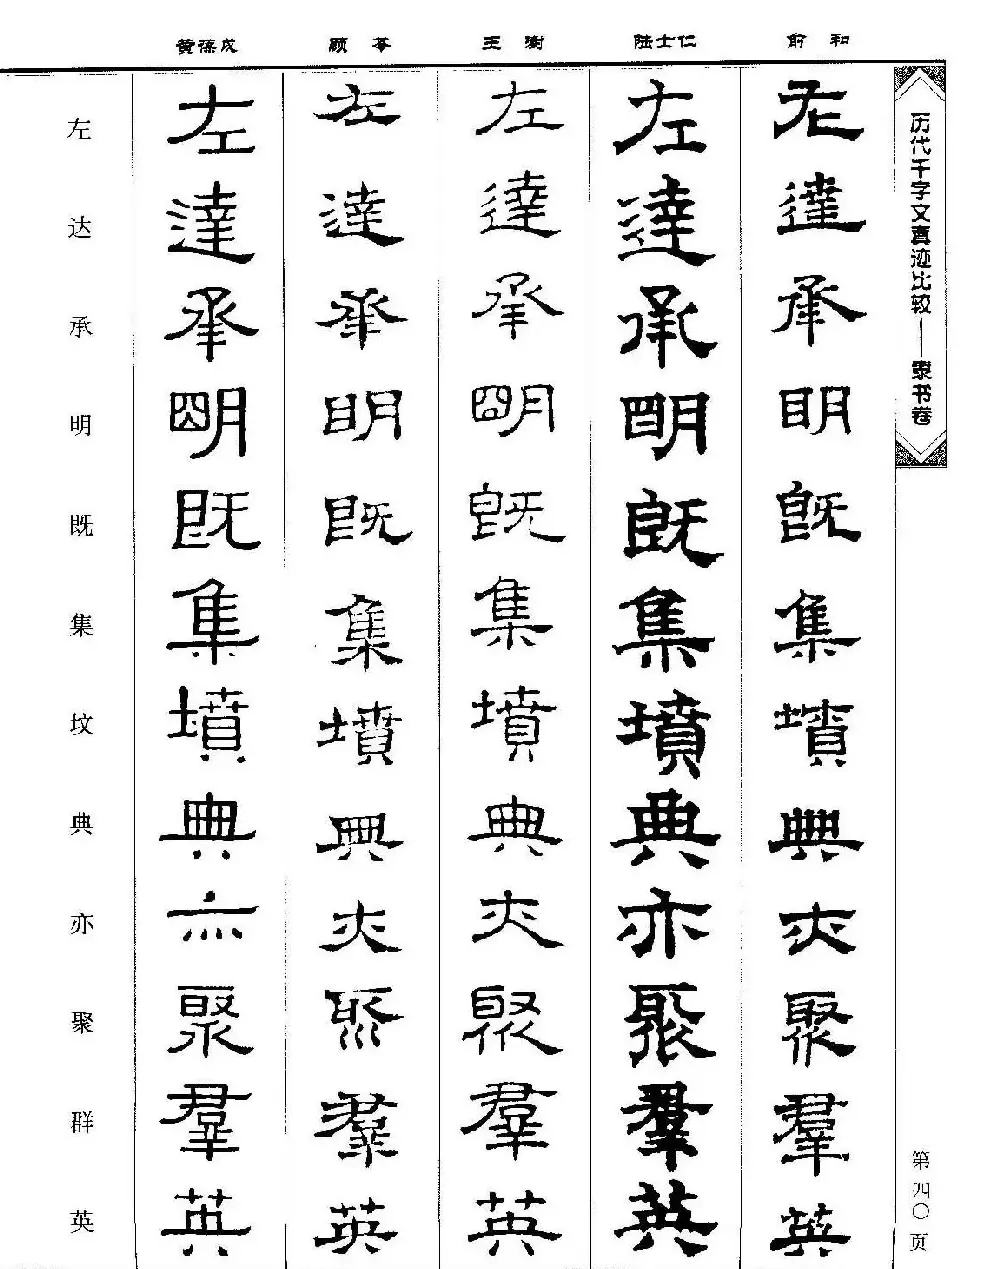 黄葆戉 顾苓 王澍 陆士仁 俞和
历代千字文真迹比较——隶书卷
左 左 左 左 左 左
达 達 達 達 達 達
承 承 承 承 承 承
明 明 明 明 明 明
既 既 既 既 既 既
集 集 集 集 集 集
坟 墳 墳 墳 墳 墳
典 典 典 典 典 典
亦 亦 亦 亦 亦 亦
聚 聚 聚 聚 聚 聚
群 羣 羣 羣 羣 羣
英 英 英 英 英 英
第四〇页